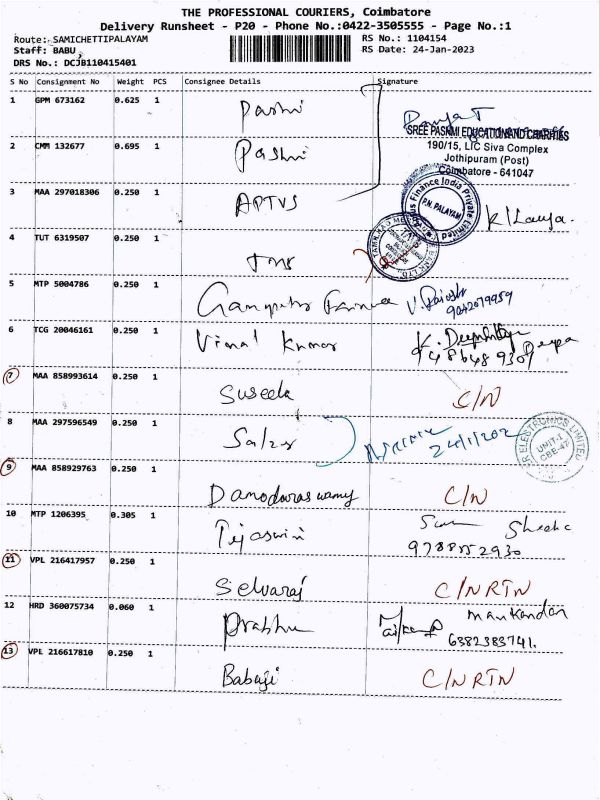 THE PROFESSIONAL COURIERS, Coimbatore
Delivery Runsheet - P20 - Phone No.:0422-3505555 - Page No.:1
Route: SAMICHETTIPALAYAM RS No.: 1104154
Staff: BABU, RS Date: 24-Jan-2023
DRS No.: DCJB110415401
S No Consignment No Weight PCS Consignee Details Signature
1 GPM 673162 0.625 1 Pashi
SREE PASHMI EDUCATION AND CHARITIES
190/15, LIC Siva Complex
2 CMM 132677 0.695 1 Pashi
Jothipuram (Post)
Coimbatore - 641047
3 MAA 297018306 0.250 1 APTVS
Finance India Private Limited
P.N. PALAYAM
4 TUT 6319507 0.250 1
5 MTP 5004786 0.250 1 9042079959
6 TCG 20046161 0.250 1 Vimal Kumar K. Deepa
9486489307
7 MAA 858993614 0.250 1 Suseela C/N
8 MAA 297596549 0.250 1 Salzer
ELECTRONICS LIMITED
UNIT-1
CBE-47
9 MAA 858929763 0.250 1 Damodaraswamy C/N
10 MTP 1206395 0.305 1 Tejaswini
9788552930
11 VPL 216417957 0.250 1 Selvaraj C/N RTN
12 HRD 360075734 0.060 1 Prabhu Manikandan
6382383741.
13 VPL 216617810 0.250 1 Babuji C/N RTN